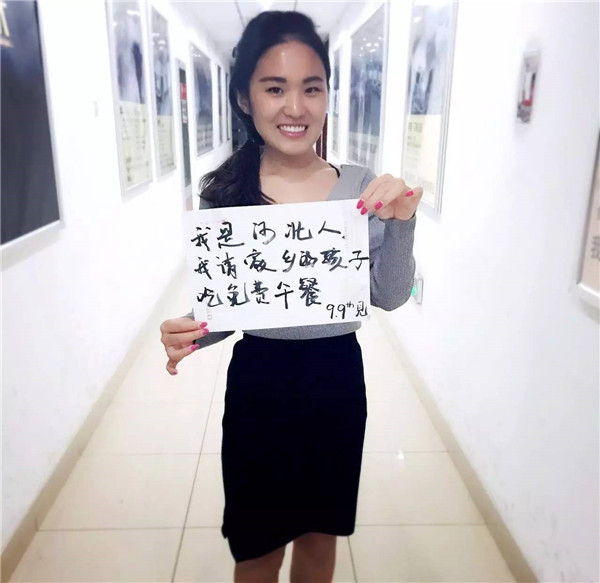 我是河北人.
我请家乡的孩子
吃免费午餐
9.9th见